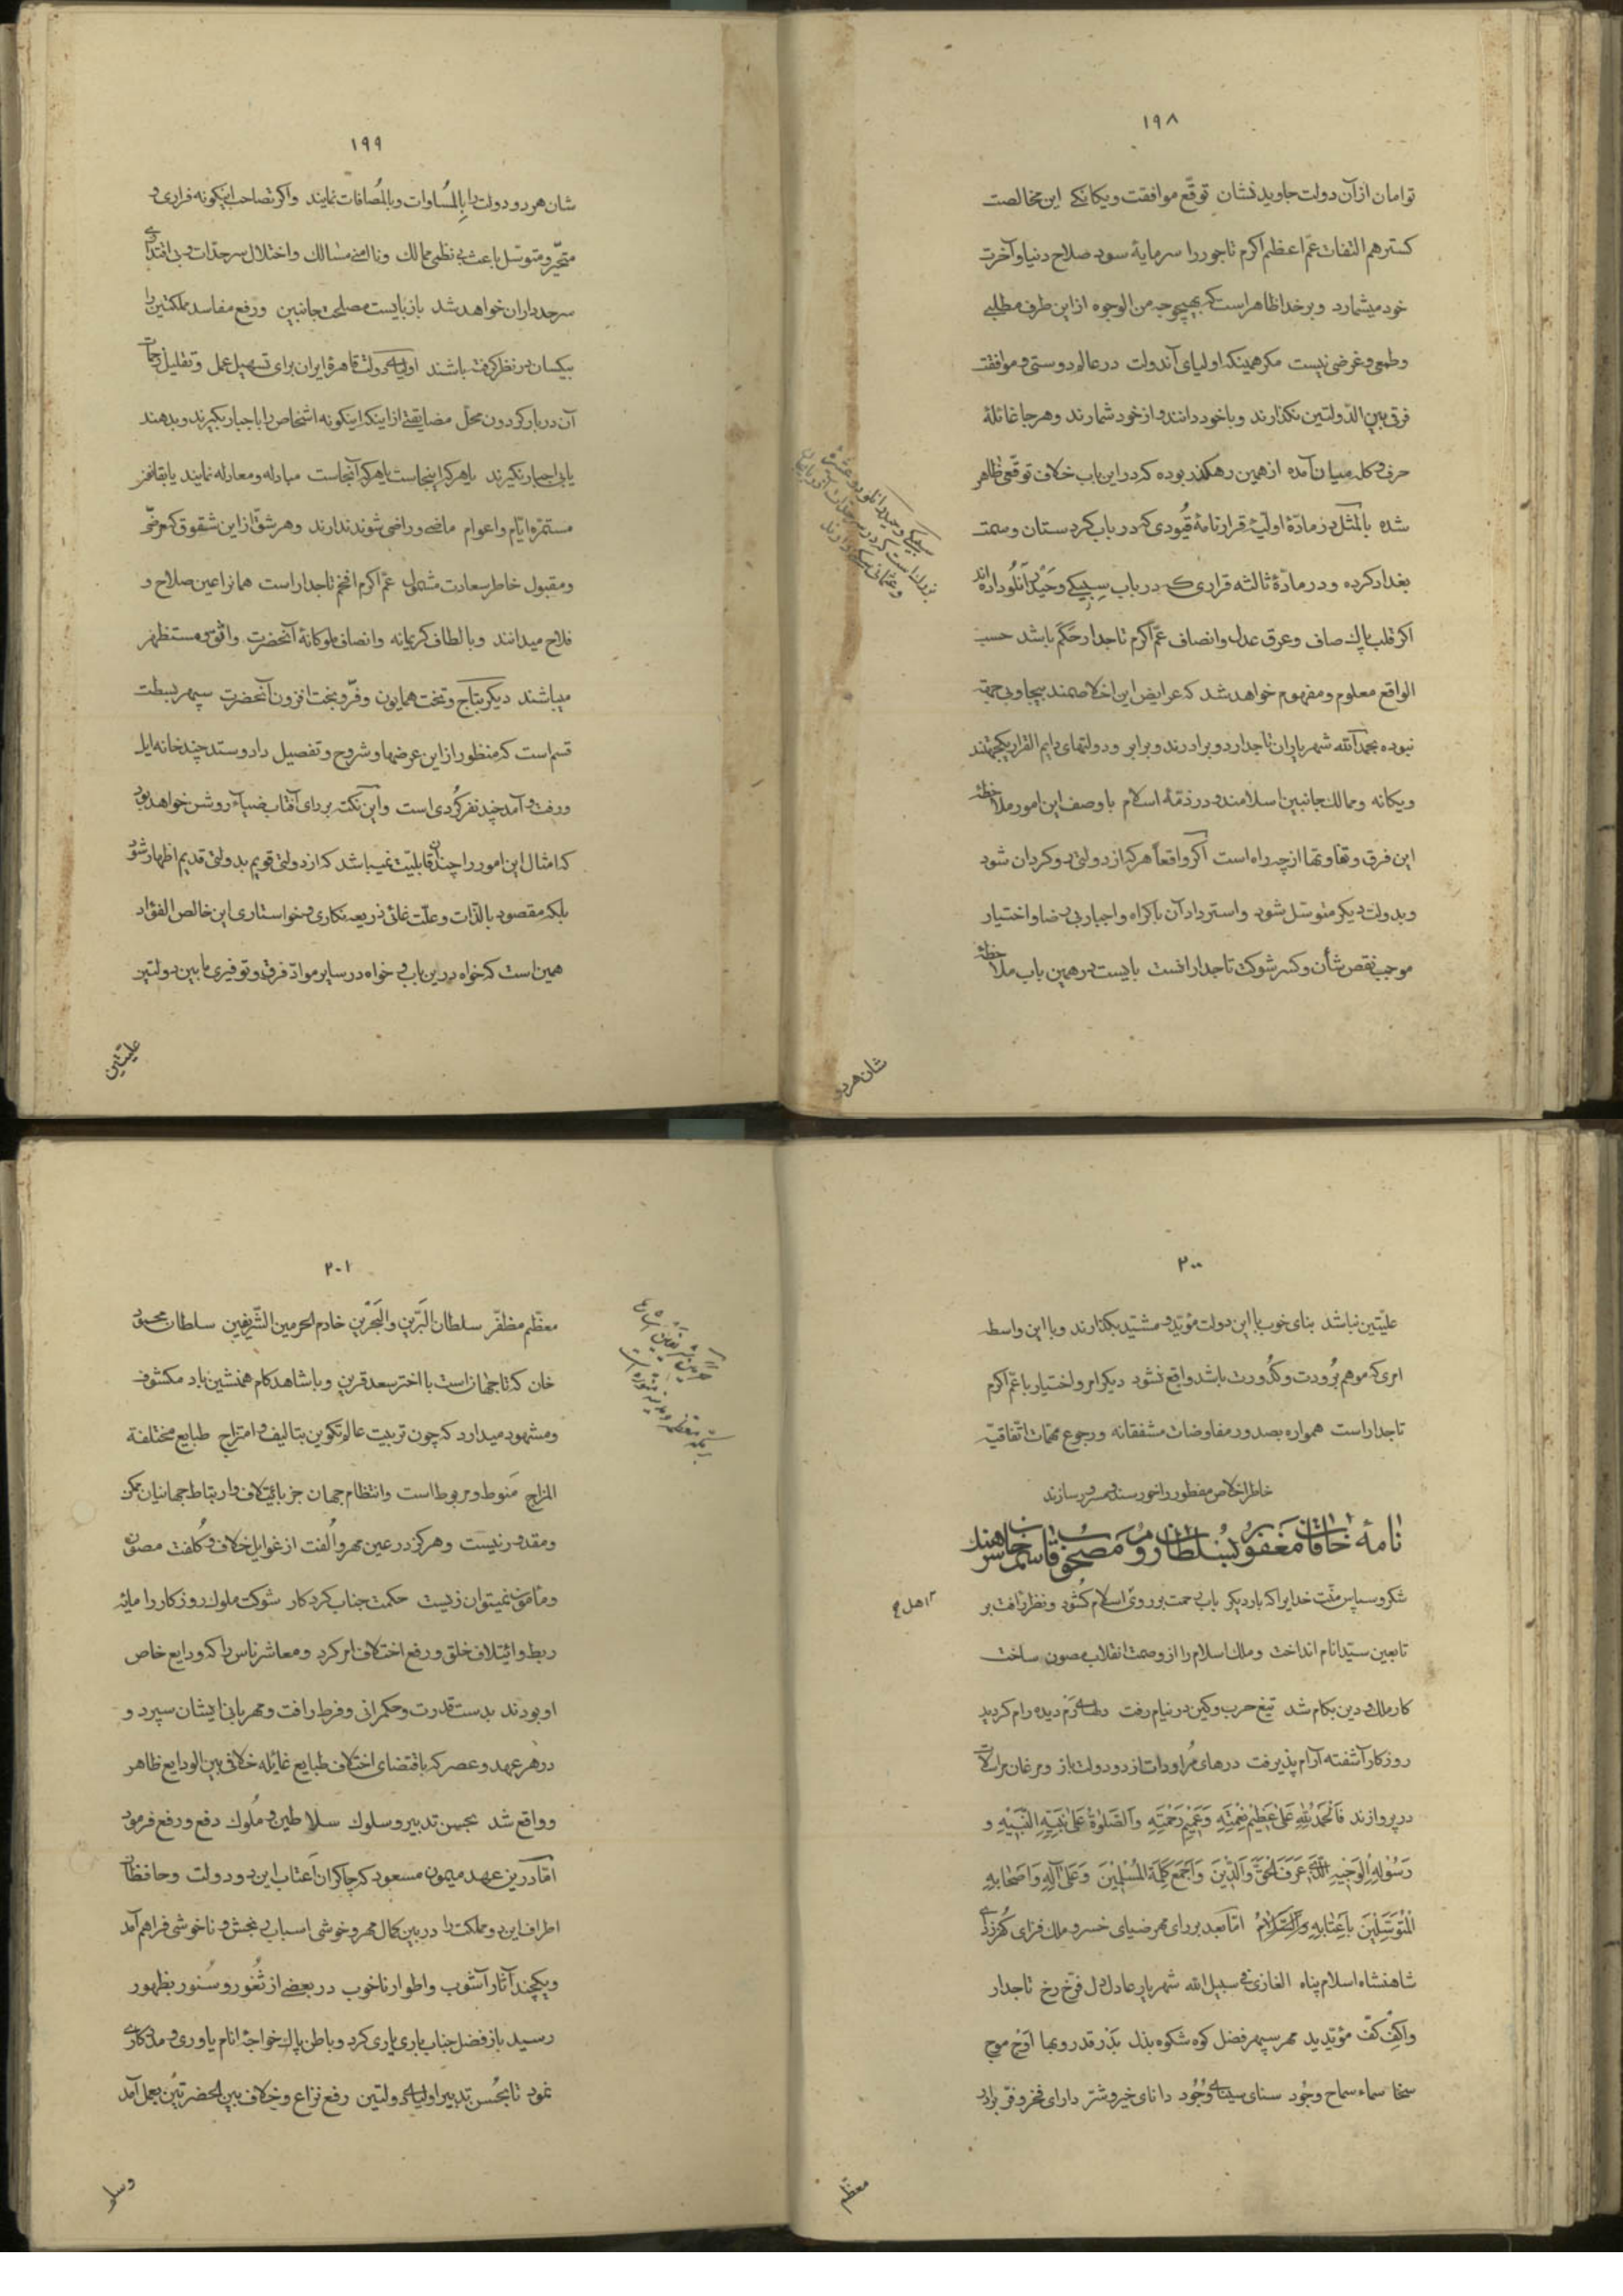 ۱۹۸
توامان از آن دولت جاوید نشان توقّع موافقت و یکانکے این مخالصت
کستر هم التفات عمّ اعظم اکرم تاجور را سرمایهٔ سود صلاح دنیا و آخرت
خود میشمارد و بر خدا ظاهر است که بهیچوجه من الوجوه از این طرف مطلبے
و طمعی و غرضی نیست مکر همینکه اولیای آندولت در عالم دوستی و موافقت
فرقی بین الدّولتین نکذارند و با خود دانند و از خود شمارند و هر جا غائلهٔ
حرف و کله بمیان آمده از همین رهکذر بوده که در این باب خلاف توقّعی ظاهر
شده بالمثل در مادّهٔ اولیّهٔ قرارنامه قیُودی که در باب کردستان و سمت
بغداد کرده و در مادّهٔ ثالثه قراری که در باب سِیبیکے و حَیدرانلُو داده‌اند
اکر قلب پاك صاف و عرق عدل و انصاف عمّ اکرم تاجدار حَکَم باشد حسب
الواقع معلوم و مفهوم خواهد شد که عرایض این اخلاصمند بیجا و بی جهة
نبوده بحمدالله شهریاران تاجدار دو برادرند و برابر و دولتهای دایم القرار یکجهتند
و یکانه و ممالك جانبین اسلامند و در ذمّهٔ اسلام با وصف این امور ملاحظهٔ
این فرق و تفاوتها از چه راه است اکر واقعاً هر که از دولتی رو کردان شود
و بدولت دیکر متوسّل شود و استرداد آن باکراه و اجبار بی رضا و اختیار
موجب نقص شأن و کسر شوکت تاجداراست بایست در همین باب ملاحظهٔ
شان هر دو
۱۹۹
شان هر دو دولت را بِالمُساوات و بالمُصافات نمایند و اکر تصاحب اینکونه فراری و
متحیّر و متوسّل باعث بی نظمی ممالك و ناامنی مسالك و اختلال سرحدّات و بی اقتداری
سرحدداران خواهد شد باز بایست مصلحت جانبین و رفع مفاسد مملکتین را
بیکسان در نظر کرفته باشند اولیای دولت قاهرهٔ ایران برای تسهیل عمل و تقلیل زحمات
آن دربار کردون محلّ مضایقتے از اینکه اینکونه اشخاص را باجبار بکیرند و بدهند
یا بی اجبار نکیرند یا هر که اینجاست با هر که آنجاست مبادله و معادله نمایند یا بقانون
مستمرّه ایّام و اعوام ماضے و راضی شوند ندارند و هر شقّ از این شقوق که مرضیّ
و مقبول خاطر سعادت مشمول عمّ اکرم افخم تاجدار است همانرا عین صلاح و
فلاح میدانند و بالطاف کریمانه و انصاف ملوکانهٔ آنحضرت واثق و مستظهر
میباشند دیکر بتاج و تخت همایون و فرّ و بخت افزون آنحضرت سپهر بسطت
قسم است که منظور از این عرضها و شروح و تفصیل داد و ستد چند خانه ایل
و رفت و آمد چند نفر کُردی است و این نکته بر رای آفتاب ضیاء روشن خواهد بود
که امثال این امور را چندان قابلیّت نمیباشد که از دولتی قویم بدولتی قدیم اظهار شود
بلکه مقصود بالذّات و علّت غائی ذریعه نکاری و خواستاری این خالص الفؤاد
همین است که خواه در این باب و خواه در سایر موادّ فرق و توفیری ما بین دولتین
علیّتین
۲۰۰
علیّتین نباشد بنای خوب با این دولت مؤیّد و مشیّد بکذارند و با این واسطه
امری که موهم برُودت و کدُورت باشد واقع نشود دیکر امر و اختیار با عمّ اکرم
تاجدار است همواره بصدور مفاوضات مشفقانه و رجوع مهمّات اتّفاقیّه
خاطر اخلاص مفطور را خورسند و مسرور سازند
شکر و سپاس و منّت خدایرا که بار دیکر باب رحمت بر روی اسلام کشُود و نظر رأفت بر
تابعین سیّد انام انداخت و ملك اسلام را از وصمت انقلاب مصون ساخت
کار ملك و دین بکام شد تیغ حرب و کین در نیام رفت دلهای رَم دیده رام کردید
روزکار آشفته آرام پذیرفت درهای مُراودات از دو دولت باز و مرغان مراسلات
در پروازند فَالْحَمْدُ لِلّهِ عَلیٰ عَظِیْمِ نِعْمَتِهِ وَعَمِیْمِ رَحْمَتِهِ وَالصَّلوٰةُ عَلیٰ نَبِیِّهِ النَّبِیْهِ وَ
رَسُوْلِهِ الوَجِیْهِ الَّذِی عَرَفَ الْحَقَّ وَالدِّیْنَ وَاَجْمَعَ کَلِمَةَ المُسْلِمِیْنَ وَعَلیٰ آلِهِ وَاَصْحَابِهِ
المُتَوَسِّلِیْنَ بِاَعْتَابِهِ وَالسَّلَامُ امّا بعد بر رای مهر ضیای خسرو ملك فزای
شاهنشاه اسلام پناه الغازی فی سبیل الله شهریار عادل دل فرّخ رخ تاجدار
واکِفْ کفّ مؤیّد ید مهر سپهر فضل کوه شکوه بذل بَدْر قدر و بها اوْج موج
سخا سماء سماح و جُود سنای سینای وُجُود دانای خیر و شرّ دارای فخر و فرّ
معظّم
۲۰۱
معظّم مظفّر سلطان البَرّین و البَحْرَین خادم الحرمین الشّریفین سلطان محمود
خان که تا جهان است با اختر سعد قرین و با شاهد کام همنشین باد مکشوف
و مشهود میدارد که چون تربیت عالم تکوین بتالیف و امتزاج طبایع مختلفة
المزاج مَنوط و مربوط است و انتظام جهان جز بایتلاف و ارتباط جهانیان ممکن
و مقدور نیست و هرکز در عین مهر و اُلفت از غوایل خلاف و کُلفت مصون
و مأمون نمیتوان زیست حکمت جناب کردکار شوکت ملوك روزکار را مایهٔ
ربط و ائیتلاف خلق و رفع اختلاف امر کرد و معاشر ناس را که ودایع خاص
او بودند بدست قدرت و حکمرانی و فرط رافت و مهربانی ایشان سپرد و
در هر عهد و عصر که باقتضای اختلاف طبایع غائله خلافی بین الودایع ظاهر
و واقع شد بحسن تدبیر و سلوك سلاطین و مُلوك دفع و رفع فرمود
امّا در این عهد میمون مسعود که چاکران اَعتاب این دو دولت و حافظان
اطراف این دو مملکت را در بین کمال مهر و خوشی اسباب رنجش و ناخوشی فراهم آمد
و یکچند آثار آشوب و اطوار ناخوب در بعضے از ثُغور و سُنور بظهور
رسید باز فضل جناب باری یاری کرد و باطن پاك خواجهٔ انام یاوری و مددکاری
نمود تا بحُسن تدبیر اولیای دولتین رفع نزاع و خلاف بین الحضرتین بعمل آمد